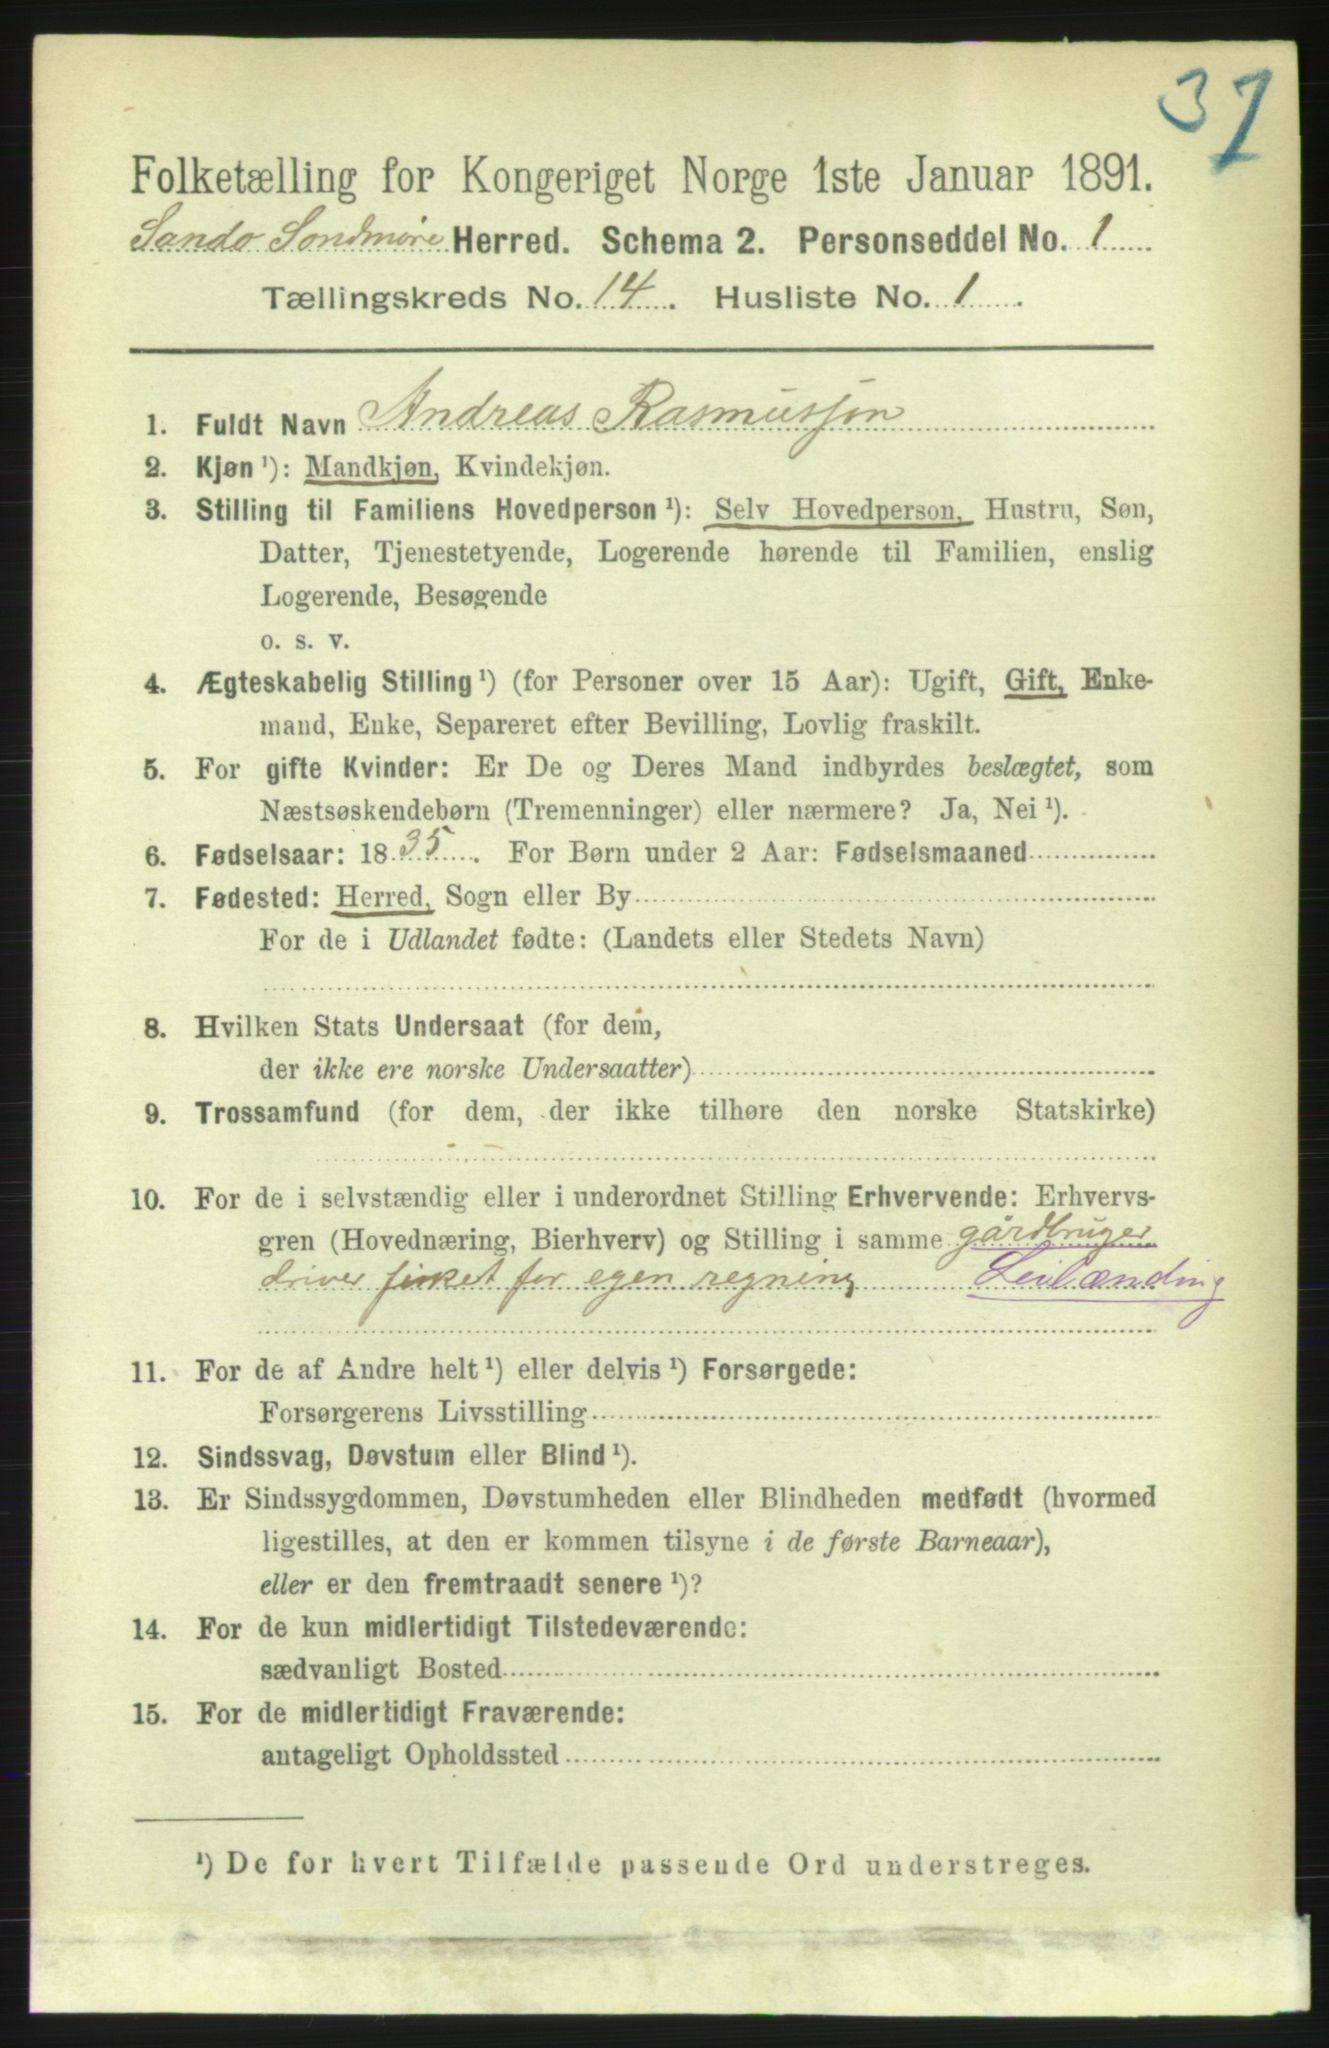 37
Folketælling for Kongeriget Norge 1ste Januar 1891.
Sandø Søndmøre Herred. Schema 2. Personseddel No. 1
Tællingskreds No. 14. Husliste No. 1.
1. Fuldt Navn Andreas Rasmussøn
2. Kjøn ¹): Mandkjøn, Kvindekjøn.
3. Stilling til Familiens Hovedperson ¹): Selv Hovedperson, Hustru, Søn,
Datter, Tjenestetyende, Logerende hørende til Familien, enslig
Logerende, Besøgende
o. s. v.
4. Ægteskabelig Stilling ¹) (for Personer over 15 Aar): Ugift, Gift, Enke-
mand, Enke, Separeret efter Bevilling, Lovlig fraskilt.
5. For gifte Kvinder: Er De og Deres Mand indbyrdes beslægtet, som
Næstsøskendebørn (Tremenninger) eller nærmere? Ja, Nei ¹).
6. Fødselsaar: 1835. For Børn under 2 Aar: Fødselsmaaned
7. Fødested: Herred, Sogn eller By
For de i Udlandet fødte: (Landets eller Stedets Navn)
8. Hvilken Stats Undersaat (for dem,
der ikke ere norske Undersaatter)
9. Trossamfund (for dem, der ikke tilhøre den norske Statskirke)
10. For de i selvstændig eller i underordnet Stilling Erhvervende: Erhvervs-
gren (Hovednæring, Bierhverv) og Stilling i samme gårdbruger
driver fisket for egen regning Leilænding
11. For de af Andre helt ¹) eller delvis ¹) Forsørgede:
Forsørgerens Livsstilling
12. Sindssvag, Døvstum eller Blind ¹).
13. Er Sindssygdommen, Døvstumheden eller Blindheden medfødt (hvormed
ligestilles, at den er kommen tilsyne i de første Barneaar),
eller er den fremtraadt senere ¹)?
14. For de kun midlertidigt Tilstedeværende:
sædvanligt Bosted
15. For de midlertidigt Fraværende:
antageligt Opholdssted
¹) De for hvert Tilfælde passende Ord understreges.